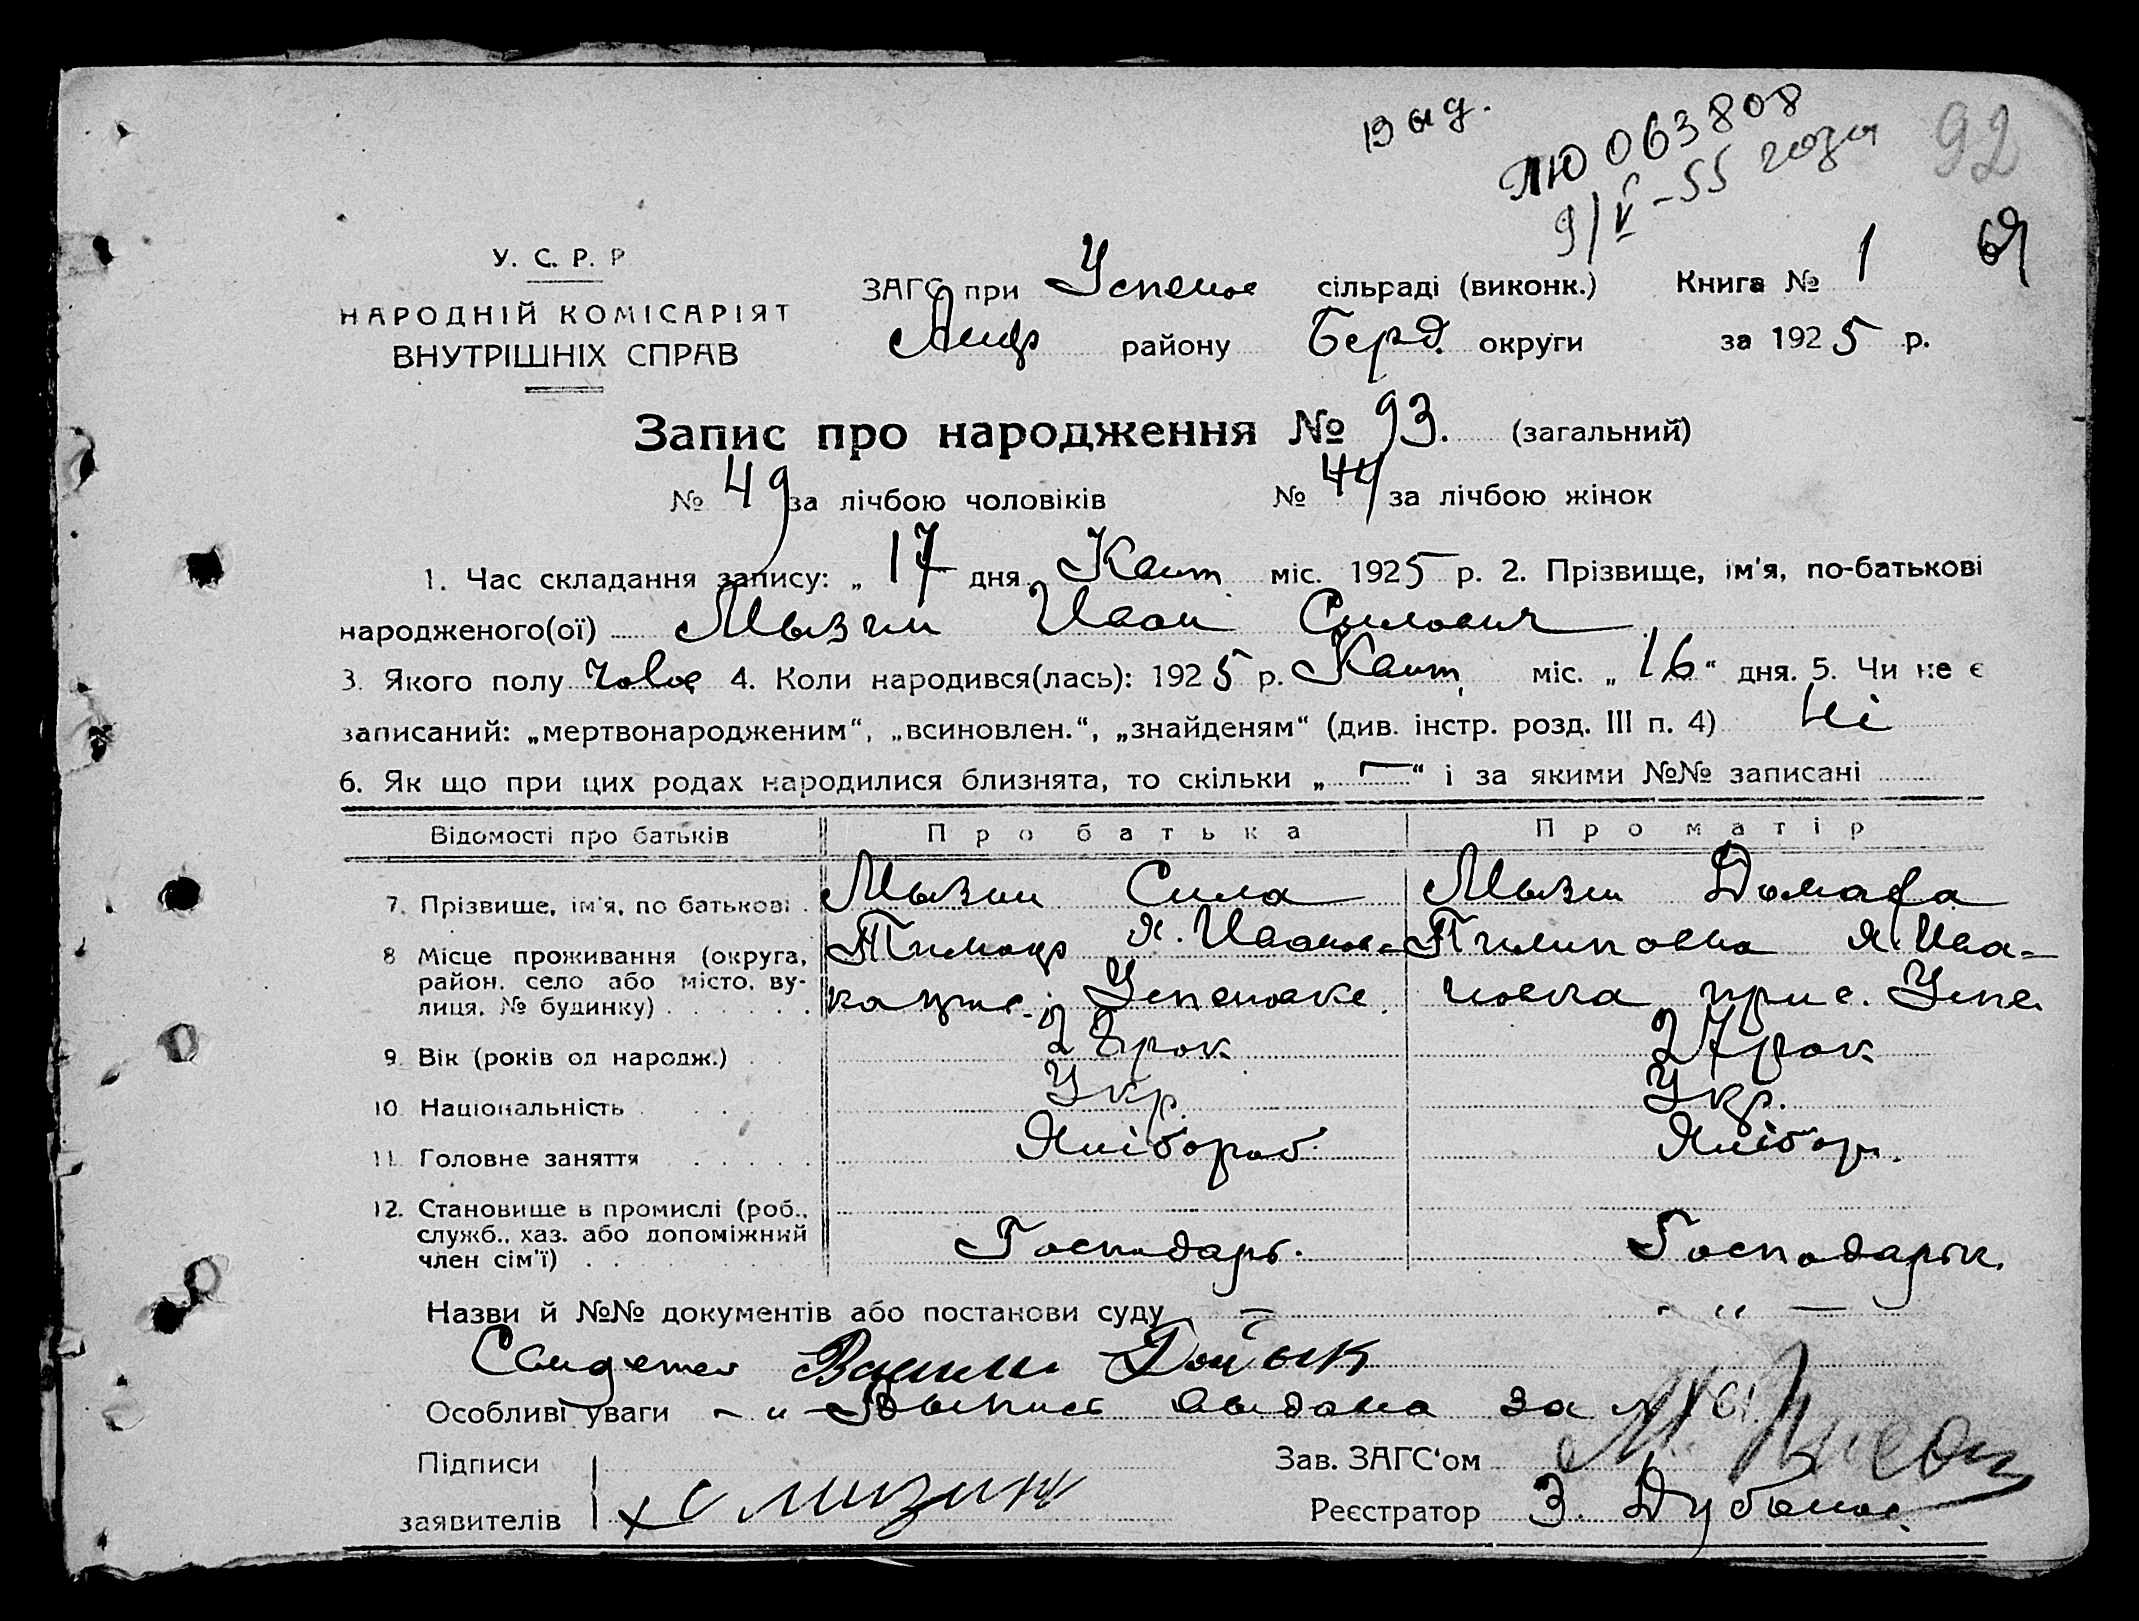 ПЮ 063808
9/V-55 года
92
У. С. Р. Р
НАРОДНІЙ КОМІСАРІЯТ
ВНУТРІШНІХ СПРАВ
ЗАГС при сільраді (виконк.) Книга № 1
району Берд. округи за 1925 р.
Запис про народження № 93. (загальний)
№ 49 за лічбою чоловіків № 44 за лічбою жінок
1. Час складання запису: „ 17 дня Квит міс. 1925 р. 2. Прізвище, ім'я, по-батькові
народженого(ої) Мызин Иван Силович
3. Якого полу чолов 4. Коли народився(лась): 1925 р. Квит міс. „ 16 “ дня. 5. Чи не є
записаний: „мертвонародженим“, „всиновлен.“, „знайденям“ (див. інстр. розд. III п. 4) Ні
6. Як що при цих родах народилися близнята, то скільки „ — “ і за якими №№ записані
Відомості про батьків Про батька Про матір
7. Прізвище, ім'я, по батькові . Мызин Сила Мызин Домаха
8 Місце проживання (округа,
район, село або місто, ву-
лиця, № будинку) . . . . . .
Х. Иванов-
Пилиповна х. Ива-
ка при с. Успеновке
новка при с. Успе.
9. Вік (років од народж.) . . 28 рок 27 рок
10. Національність . . . . Укр. Укр.
11. Головне заняття . . . . . Хлібороб. Хлібор.
12. Становище в промислі (роб.,
служб., хаз. або допоміжний
член сім'ї) . . Господарь. Господарьк.
Назви й №№ документів або постанови суду — „ —
Особливі уваги — „ — Выпись выдана за №
Підписи
заявителів х С Мизин
Зав. ЗАГС'ом
Реєстратор З.